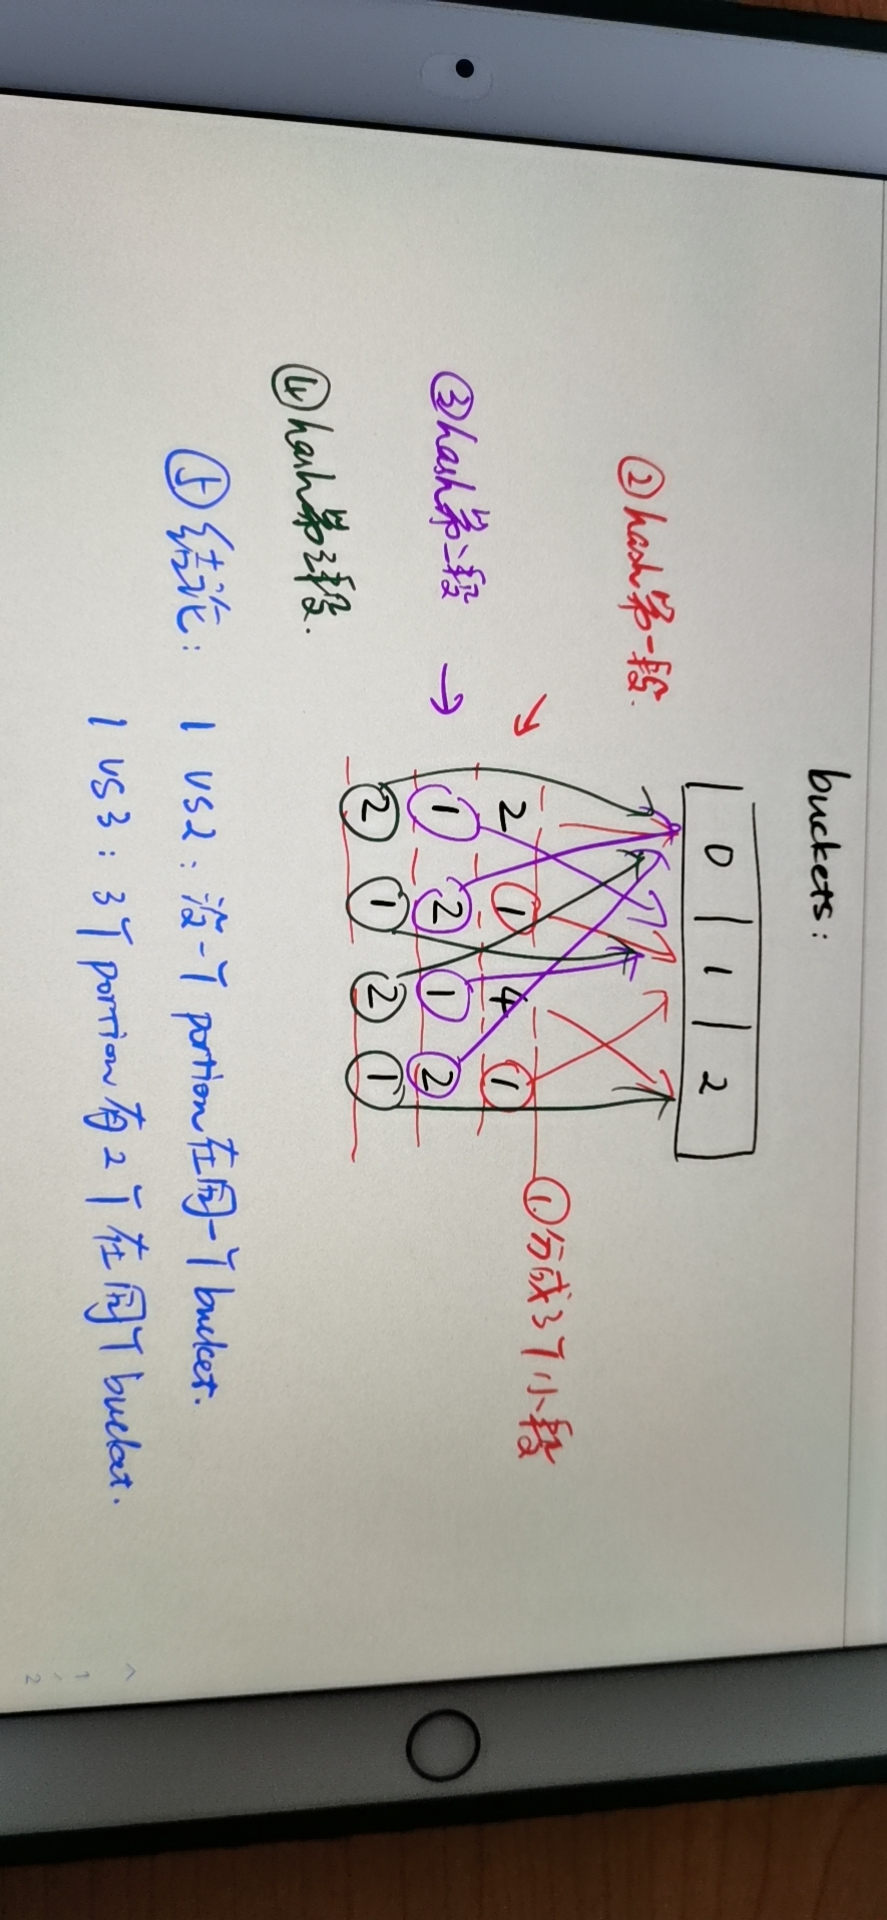 buckets:
0 1 2
②hash第一段.
①分成3个小段
2 1 4 1
③hash第二段
1 2 1 2
2 1 2 1
④hash第三段.
⑤结论: 1 VS2: 没一个portion在同一个bucket.
1 VS3: 3个portion有2个在同个bucket.
1
/
2